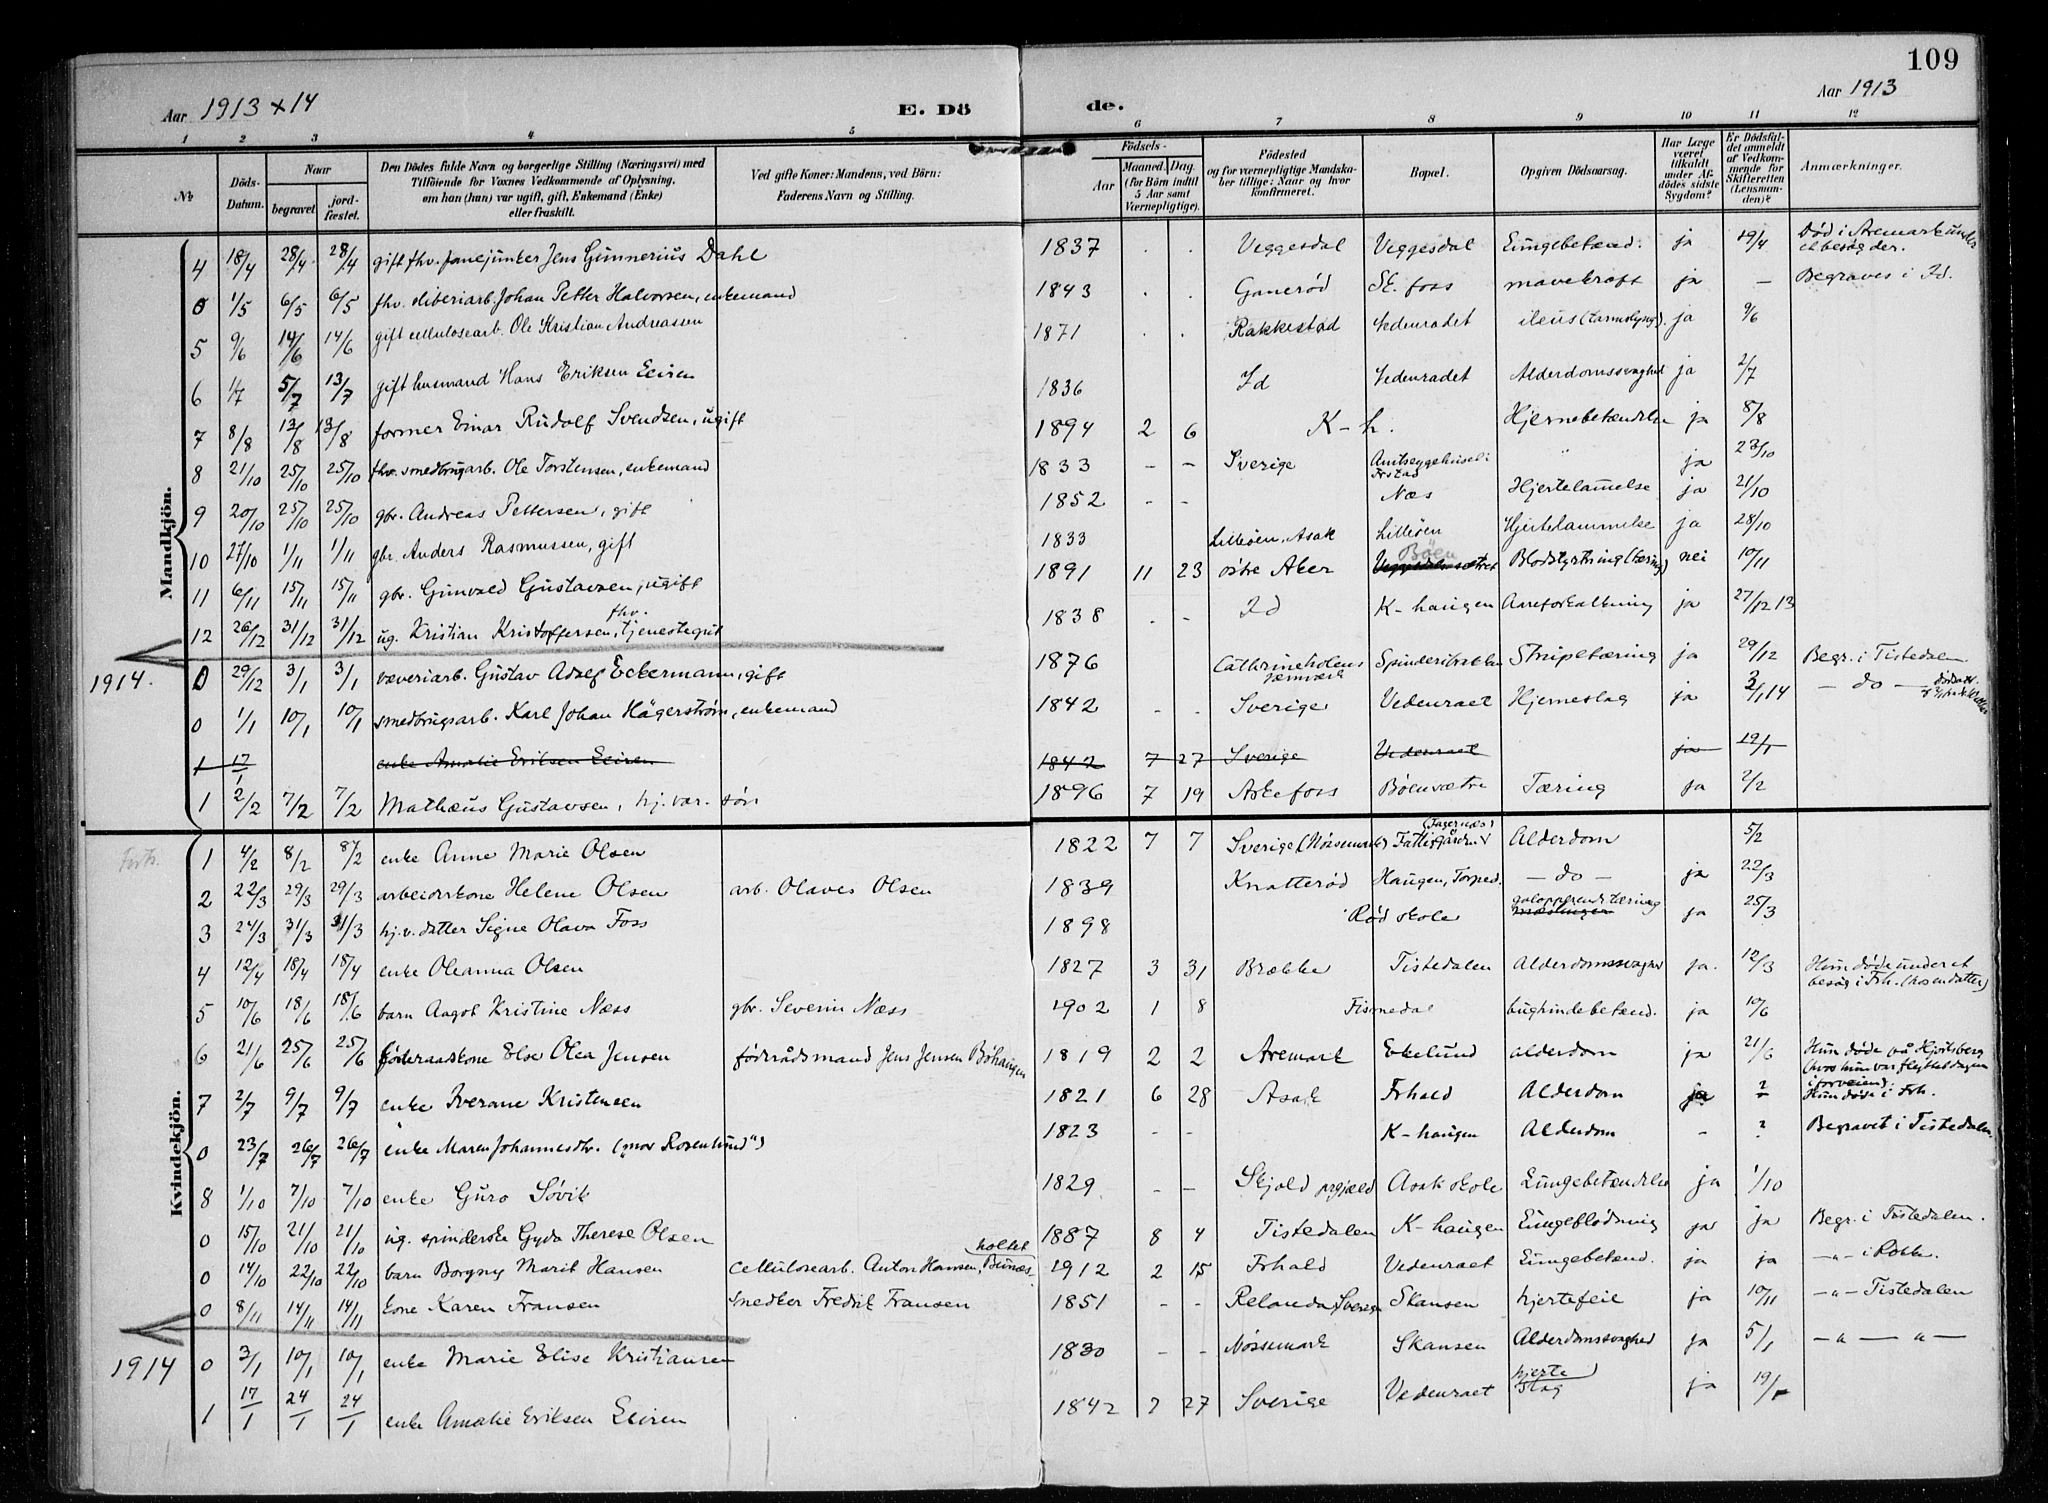 109
Aar 1913 + 14
E. Dö
de.
Aar 1913
1 2 3 4 5 6 7 8 9 10 11 12
No
Döds-Datum.
Naar
begravet
jord-fæstet.
Den Dödes fulde Navn og borgerlige Stilling (Næringsvei) med
Tilföiende for Voxnes Vedkommende af Oplysning,
om han (hun) var ugift, gift, Enkemand (Enke)
eller fraskilt.
Ved gifte Koner: Mandens, ved Börn:
Faderens Navn og Stilling.
Födsels-
Aar
Maaned. Dag.
(for Börn indtil
5 Aar samt
Værnepligtige).
Födested
og for værnepligtige Mandska-
ber tillige: Naar og hvor
konfirmeret.
Bopæl.
Opgiven Dödsaarsag.
Har Læge
været
tilkaldt
under Af-
dödes sidste
Sygdom?
Er Dödsfal-
det anmeldt
af Vedkom-
mende for
Skifteretten
(Lensman-
den)?
Anmærkninger.
Mandkjön.
4 18/4 28/4 28/4 gift fhv. Jens Gunnerius Dahl 1837 . . Veggesdal Veggesdal Lungebetænd. ja 19/4 Död i Aremark under
et besøg der.
0 1/5 6/5 6/5 fhv. sliberiarb. Johan Petter Halvorsen, enkemand 1843 . . Ganerød Sk. foss mavekræft ja — Begraves i Id.
5 9/6 14/6 14/6 gift cellulosearb. Ole Kristian Andreassen 1871 . . Rakkestad Vedenradet ileus (tarmslyng). ja 9/6
6 1/7 5/7 13/7 gift husmand Hans Eriksen Leiren 1836 Id Vedenradet Alderdomssvaghed ja 2/7
7 8/8 13/8 13/8 former Einar Rudolf Svendsen, ugift 1894 2 6 K-h. Hjernebetændelse ja 8/8
8 21/10 25/10 25/10 fhv. smedbrugarb. Ole Torstensen, enkemand 1833 – – Sverige Amtssygehuset i
Frstad " ja 23/10
9 20/10 25/10 25/10 gbr. Andreas Pettersen, gift 1852 - - Næs Hjertelammelse ja 21/10
10 27/10 1/11 1/11 gbr. Anders Rasmussen, gift 1833 Lilleöen, Asak Lilleöen Hjertelammelse ja 28/10
11 6/11 15/11 15/11 gbr. Gunvald Gustavsen, ugift 1891 11 23 østre Aker Böen Blodstyrtning (tæring) nei 10/11
12 26/12 31/12 31/12 ug. Kristian Kristoffersen, fhv. tjenestegut 1838 . - Id K-haugen Aareforkalkning ja 27/12 13
1914. 0 29/12 3/1 3/1 væveriarb. Gustav Adolf Eckermann, gift 1876 Cathrineholens
jernværk Spinderibakken Strupetæring ja 29/12 Begr. i Tistedalen
0 1/1 10/1 10/1 smedbrugsarb. Karl Johan Hägerström, enkemand 1842 - - Sverige Vedenraet Hjerneslag ja 3/1 14 – do –
1 17/1 enke Amalie Eriksen Leiren 1842 7 27 Sverige Vedenraet ja 19/1
1 2/2 7/2 7/2 Mathæus Gustavsen, hj. vær. søn 1896 7 19 Askefoss Böensætre Tæring ja 2/2
Kvindekjön.
Forts.
1 4/2 8/2 8/2 enke Anne Marie Olsen 1822 7 7 Sverige (Nössemark) Fattiggården (Fagernæs) Alderdom 5/2
2 22/3 29/3 29/3 arbeiderkone Helene Olsen arb. Olaves Olsen 1839 Knatteröd Haugen, Torped. – do – ja 22/3
3 24/3 31/3 31/3 hj.v. datter Signe Olava Foss 1898 Röd skole galopperende tæring
mæslingen ja 25/3
4 12/4 18/4 18/4 enke Oleanna Olsen 1827 3 31 Brække Tistedalen Alderdomssvaghed ja. 12/3 Hun døde under et
besøg i Frh. (hos en datter)
5 10/6 18/6 18/6 barn Aagot Kristine Næss gbr. Severin Næss 1902 1 8 Fismedal bughindebetænd. ja 10/6
6 21/6 25/6 25/6 föderaadskone Else Olea Jensen födrådsmand Jens Jensen Böhaugen 1819 2 2 Aremark Ekelund alderdom ja 21/6 Hun døde på Hjortsberg
(hvor hun var flyttet dagen
i forveien).
7 2/7 9/7 9/7 enke Iverane Kristensen 1821 6 28 Asak Frhald Alderdom ja ? Hun døde i Frh.
0 23/7 26/7 26/7 enke Maren Johannesdtr. ("mor Rosenlund") 1823 - - K-haugen Alderdom - ? Begravet i Tistedalen.
8 1/10 7/10 7/10 enke Guro Søvik 1829 – – Skjold prgjæld Asak skole Lungebetændelse ja 1/10
0 15/10 21/10 21/10 ug. spinderske Gyda Therese Olsen 1887 8 4 Tistedalen K-haugen Lungeblødning ja ja Begr. i Tistedalen.
0 14/10 22/10 22/10 barn Borgny Marit Hansen cellulosearb. Anton Hansen, holtet 1912 2 15 Frhald Vedenraet Lungebetænd. ja ja –"– i Rokke.
0 8/11 14/11 14/11 kone Karen Fransen snedker Fredrik Fransen 1851 - - Relanda, Sverige Skansen hjertefeil ja 10/11 –"– Tistedalen
1914 0 3/1 10/1 10/1 enke Marie Elise Kristiansen 1830 - - Nössemark Skansen Alderdomssvaghed ja 5/1 –"– –"–
1 17/1 24/1 24/1 enke Amalie Eriksen Leiren 1842 7 27 Sverige Vedenraet hjerte
slag ja 19/1